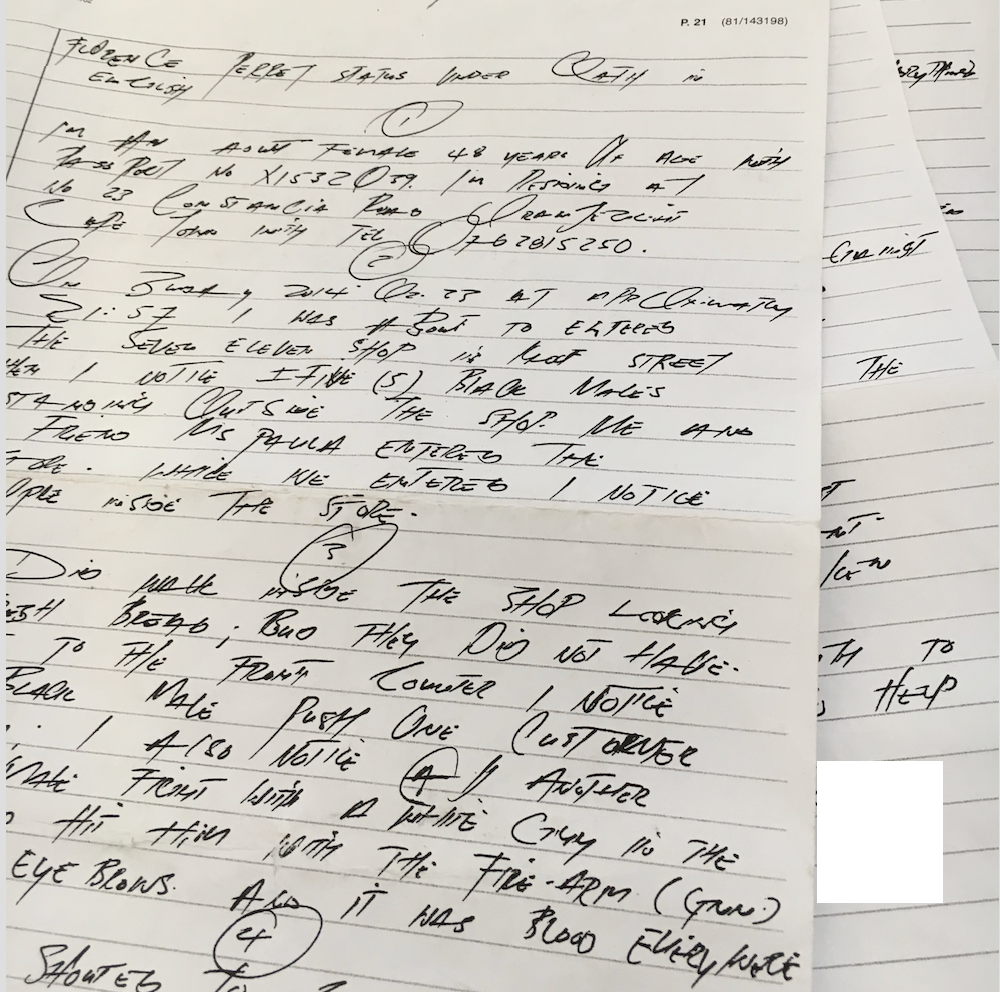 P. 21 (81/143198)
FLORENCE PERRET STATUS UNDER OATH in
ENGLISH
1
I'm AN ADULT FEMALE 48 YEARS OF AGE WITH
PASSPORT NO X1532039. I'm RESIDING AT
NO 23 CONSTANCIA ROAD ORANJEZICHT
CAPE TOWN WITH TEL 0762815250.
2
ON 2014. 02. 23 AT APPROXIMATLY
21:57 I WAS ABOUT TO ENTERED
THE SEVEN ELEVEN SHOP in KLOOF STREET
I NOTICE FIVE (5) BLACK MALES
STANDING OUTSIDE THE SHOP. ME AND
FRIEND MS PAULA ENTERED THE
WHILE WE ENTERED I NOTICE
INSIDE THE STORE.
3
DID WALK INSIDE THE SHOP LOOKING
BREAD, BUT THEY DID NOT HAVE.
TO THE FRONT COUNTER I NOTICE
BLACK MALE PUSH ONE CUSTOMER
I ALSO NOTICE ANOTHER
MALE FIGHT WITH A WHITE GUY in THE
HIT HIM WITH THE FIRE-ARM (GUN)
EYE BROWS. AND IT WAS BLOOD EVERYWERE
4
SHOUTED TO
AGAINST
THE
NOT.
TH TO
HELP